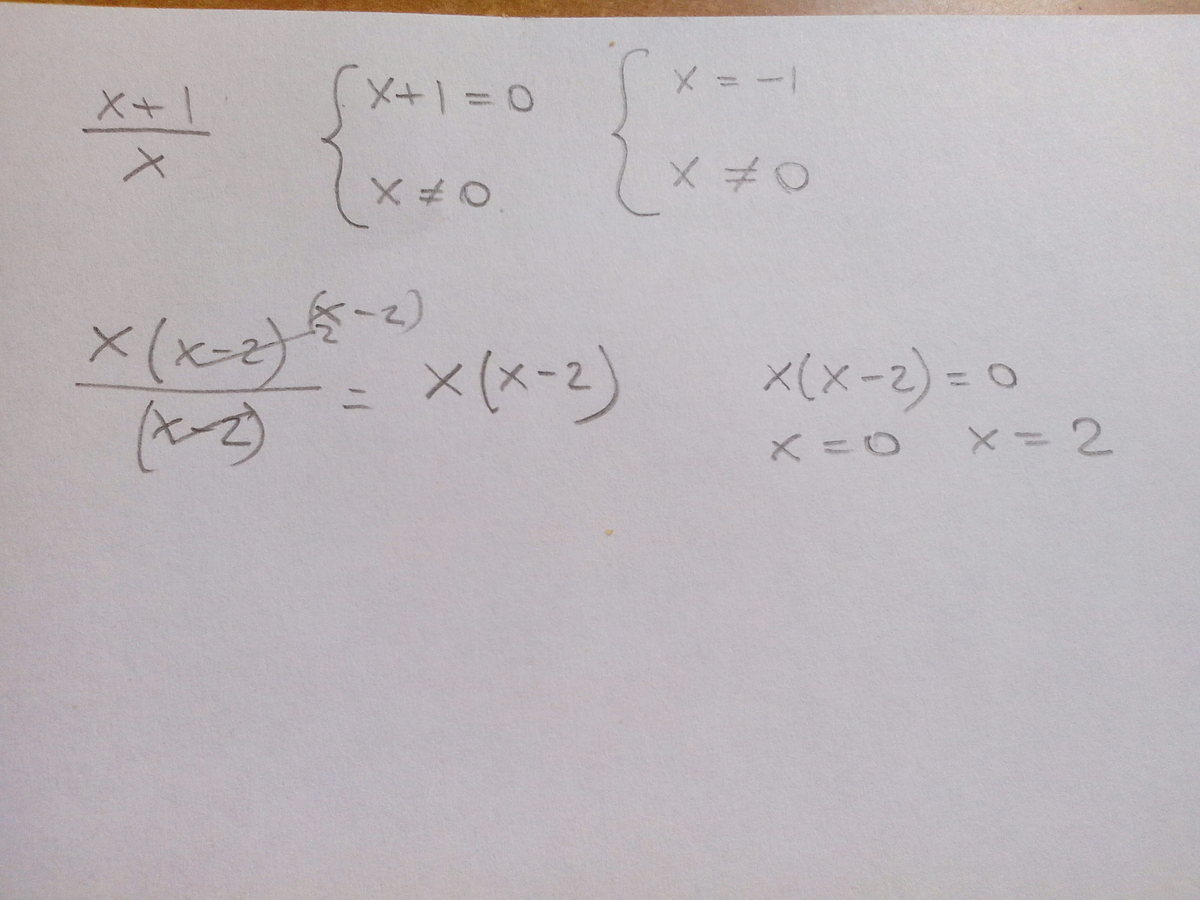 x+1/x { x+1=0 x≠0 { x=-1 x≠0
x(x-2)²(x-2)/(x-2) = x(x-2) x(x-2)=0
x=0 x=2